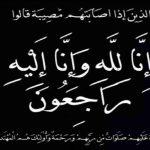 الذين إذا أصابتهم مصيبة قالوا
إنا لله وإنا إليه
راجعون
عليهم صلوات من ربهم ورحمة وأولئك هم المهتد